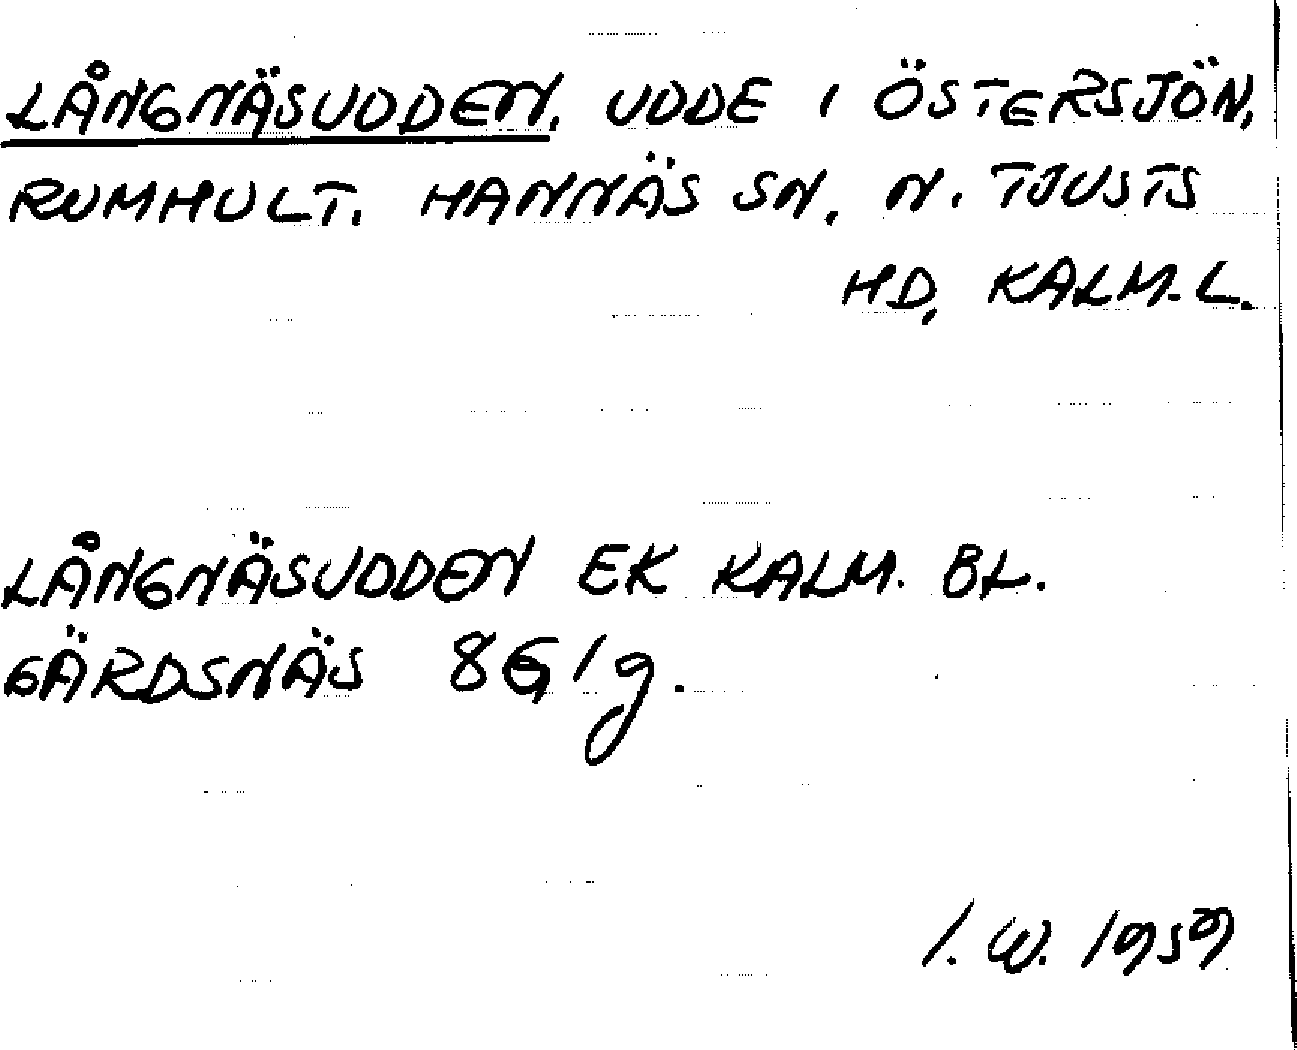 LÅNGNÄSUDDEN. UDDE I ÖSTERSJÖN,
RUMHULT. HANNÄS SN, N. TJUSTS
HD, KALM.L.
LÅNGNÄSUDDEN EK KALM. BL.
GÄRDSNÄS 8G1g.
I.W. 1959